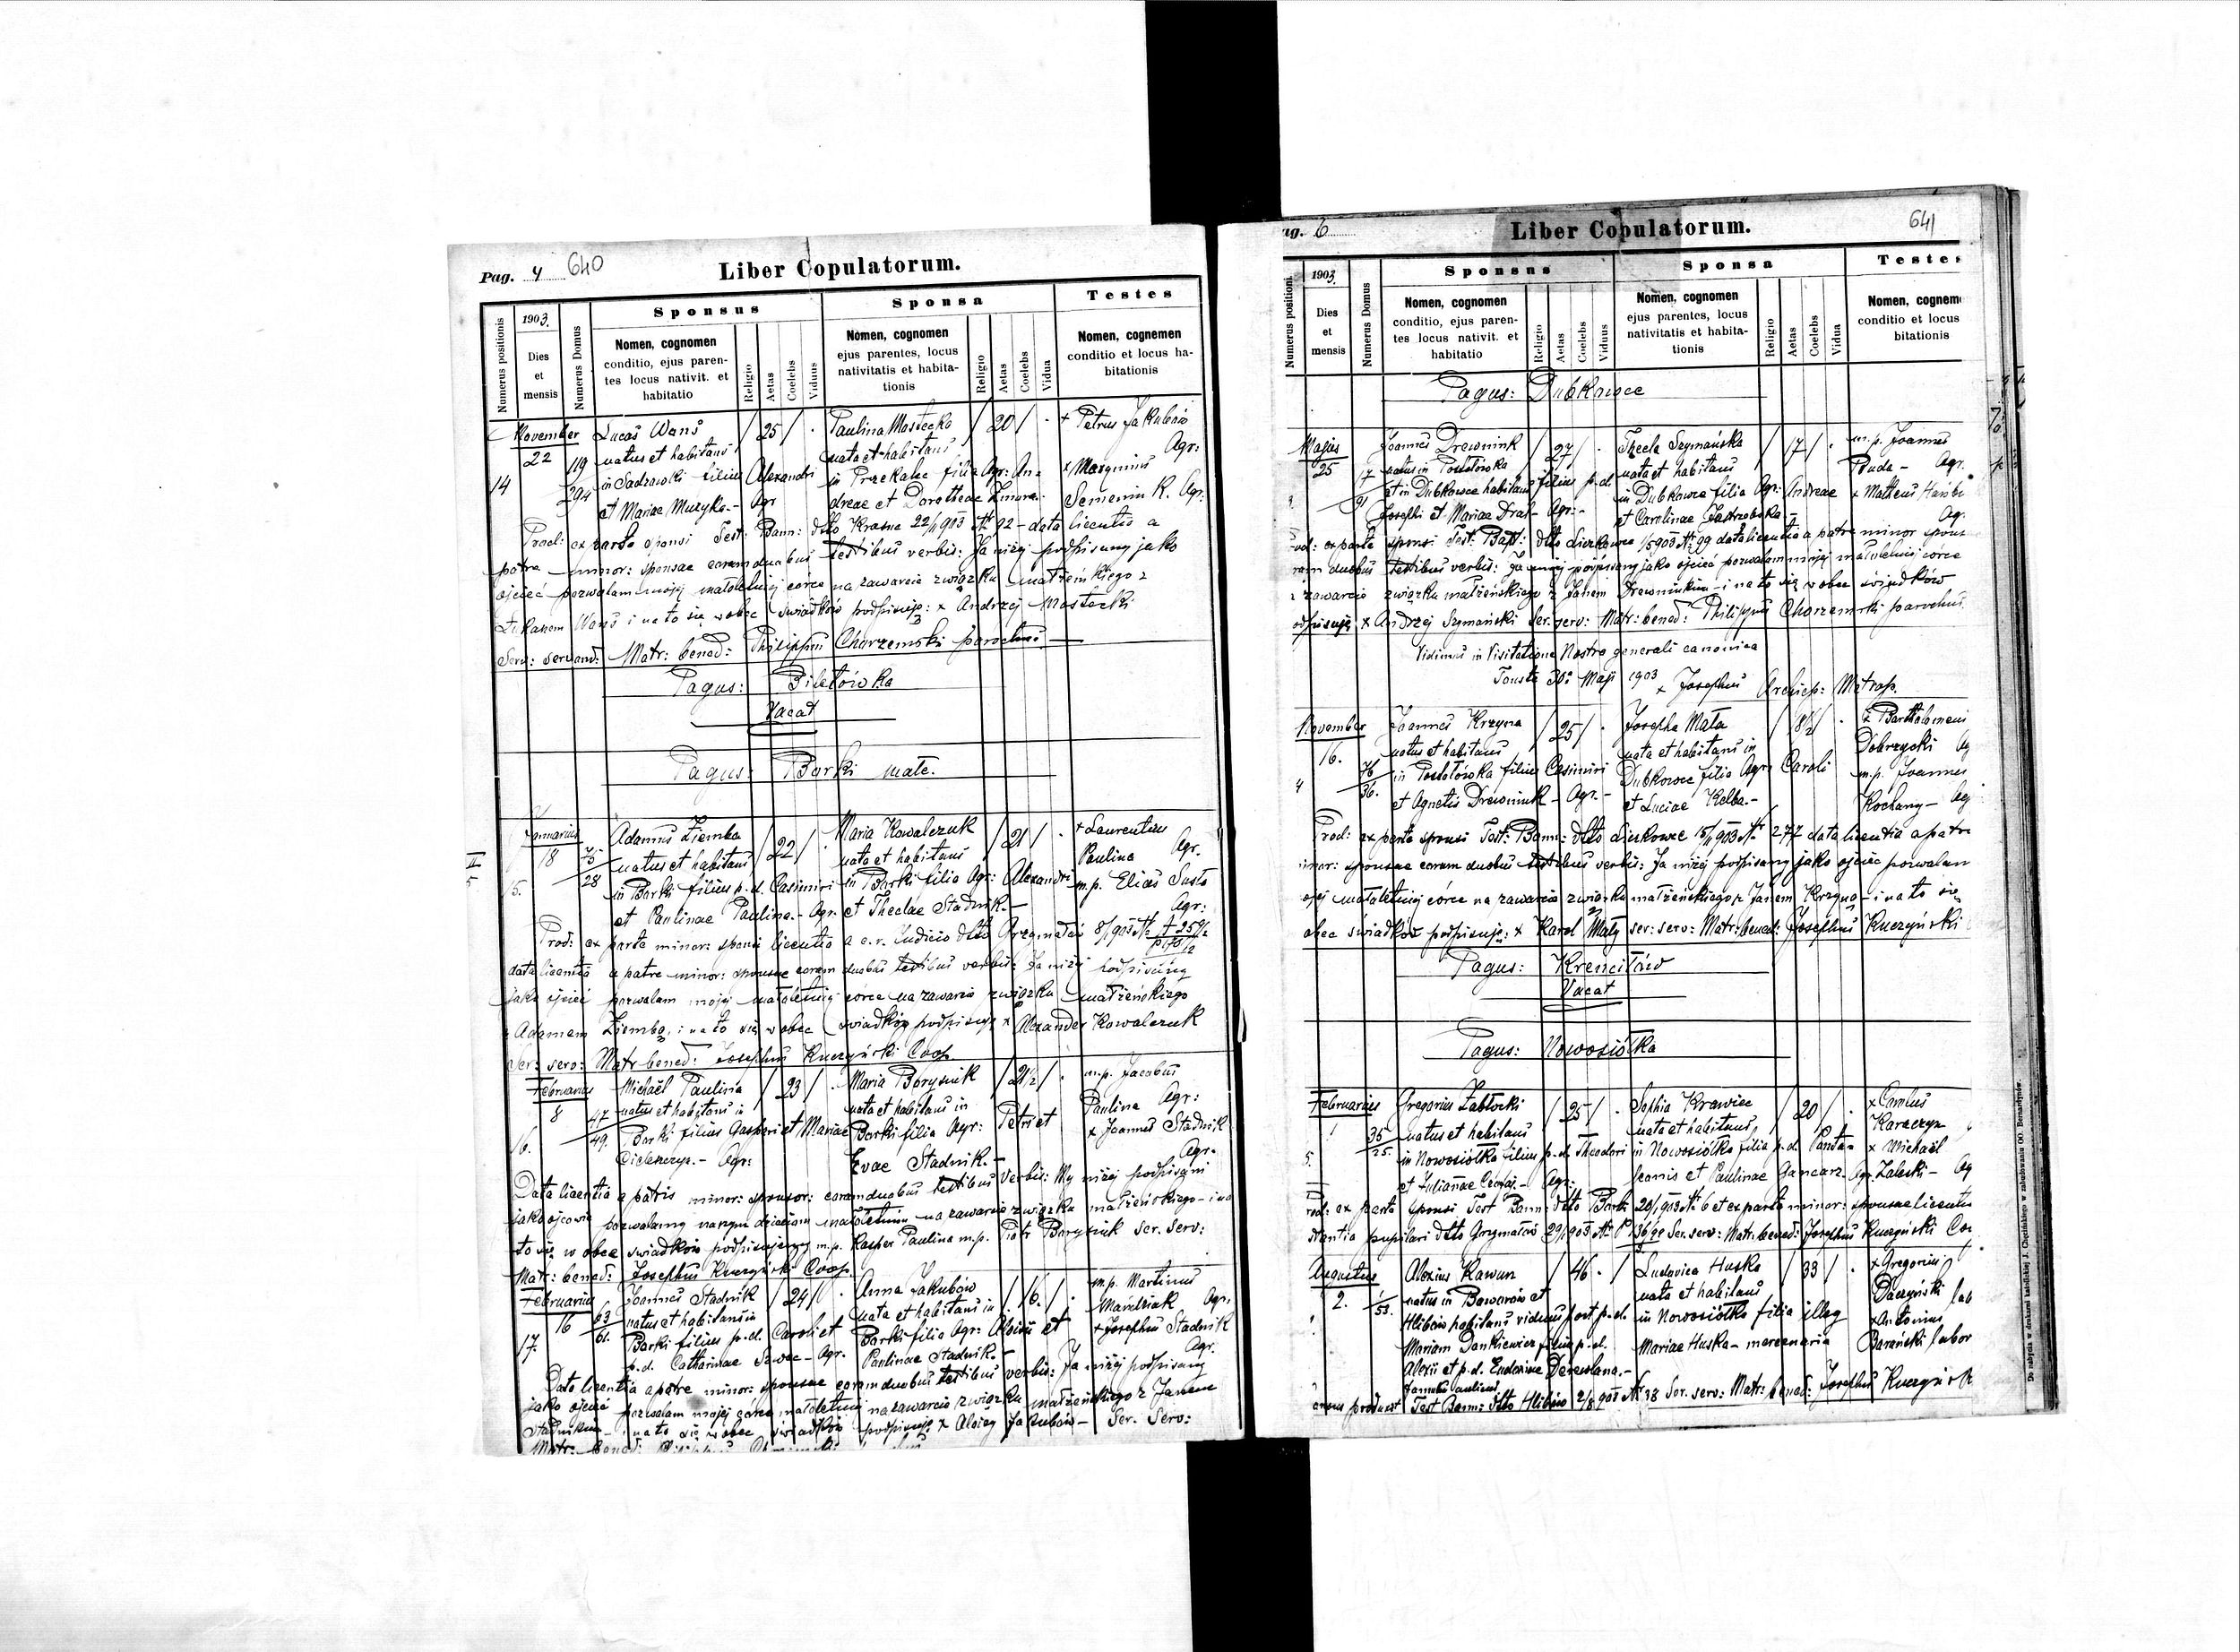 Pag. 4 640
Liber Copulatorum.
Numerus positionis
1903.
Dies
et
mensis
Numerus Domus
Sponsus
Nomen, cognomen
conditio, ejus paren-
tes locus nativit. et
habitatio
Religio
Aetas
Coelebs
Viduus
Sponsa
Nomen, cognomen
ejus parentes, locus
nativitatis et habita-
tionis
Religio
Aetas
Coelebs
Vidua
Testes
Nomen, cognomen
conditio et locus ha-
bitationis
14
November
22
119
294
Lucas Wans
natus et habitans
in Sadzawki filius Alexandri
et Mariae Muzyka.- Agr
25
Paulina Mostecka
nata et habitans
in Przekalec filia Agr: An=
dreae et Dorotheae Zmora.
20
+ Petrus Jakubów
Agr:
x Marynius
Semeniu K. Agr:
Prod: ex parte sponsi Test: Bann: dtto Krasne 22/11 903 N 92 - data licentia a
patre minor: sponsae coram duobus testibus verbis: Ja niżej podpisany jako
ojciec pozwalam mojej małoletniej córce na zawarcie związku małżeńskiego z
Łukaszem Wans i na to się wobec świadków podpisuję: x Andrzej Mostecki
Serv: servand: Matr: bened: Philippus Chorzemski parochus.
Pagus: Biletówka
Vacat
Pagus: Borki małe.
15.
Januarius
18
75
28
Adamus Ziemba
natus et habitans
in Borki filius p.d. Casimiri
et Paulinae Paulina.- Agr.
22
Maria Kowalczuk
nata et habitans
in Borki filia Agr: Alexandri
et Theclae Stadnik.-
21
+ Laurentius
Paulina Agr.
m.p. Elias Susło
Agr:
Prod: ex parte minor: sponsi licentia a c.r. Judicio dtto Grzymałów 8/1 903
data licentia a patre minor: sponsae coram duobus testibus verbis: Ja niżej podpisany
jako ojciec pozwalam mojej małoletniej córce na zawarcie związku małżeńskiego
z Adamem Ziembą, i na to się wobec świadków podpisuję x Alexander Kowalczuk
Ser: serv: Matr: bened: Josephus Kuczyński Coop.
16.
Februarius
8
47
49.
Michaël Paulina
natus et habitans in
Borki filius Gasperi et Mariae
Cielenczyz.- Agr:
23
Maria Borysnik
nata et habitans in
Borki filia Agr: Petri et
Evae Stadnik.-
21½
m.p. Jacobus
Paulina Agr:
x Joannes Stadnik
Agr.
Data licentia a patris minor: sponsor: coram duobus testibus verbis: My niżej podpisani
jako ojcowie pozwalamy naszym dzieciom małoletnim na zawarcie związku małżeńskiego - i na
to się w obec świadków podpisujemy m.p. Kasper Paulina m.p. Piotr Borysnik Ser. serv:
Matr: bened: Josephus Kuczyński Coop.
17.
Februarius
16
63
61.
Joannes Stadnik
natus et habitans in
Borki filius p.d. Caroli et
p.d. Catharinae Szwec - Agr.
24
Anna Jakubów
nata et habitans in
Borki filia Agr: Aloisii et
Paulinae Stadnik.-
16.
m.p. Martinus
Mandziak Agr.
+ Josephus Stadnik
Agr.
Data licentia a patre minor: sponsae coram duobus testibus verbis: Ja niżej podpisany
jako ojciec pozwalam mojej córce małoletniej na zawarcie związku małżeńskiego z Janem
Stadnikiem - i na to się wobec świadków podpisuję x Alojzy Jakubów - Ser. serv:
Matr: bened:
ag. 6
Liber Copulatorum.
641
Numerus positioni
1903.
Dies
et
mensis
Numerus Domus
Sponsus
Nomen, cognomen
conditio, ejus paren-
tes locus nativit. et
habitatio
Religio
Aetas
Coelebs
Viduus
Sponsa
Nomen, cognomen
ejus parentes, locus
nativitatis et habita-
tionis
Religio
Aetas
Coelebs
Vidua
Testes
Nomen, cognem
conditio et locus
bitationis
Pagus: Dubkowce
Majus
25
17
91
Joannes Drewniuk
natus in Postołówka
et in Dubkowce habitans filius p.d.
Josephi et Mariae Drał - Agr:-
27
Thecla Szymańska
nata et habitans
in Dubkowce filia Agr: Andreae
et Carolinae Jastrzębska -
17
m.p. Joannes
Pruda - Agr.
x Matteus
Agr.
rod: ex parte sponsi Test: Bapt: dtto Liczkowce 1/5 903 N: 99 data licentia a patre minor spons
ram duobus testibus verbis: Ja niżej podpisany jako ojciec pozwalam mojej małoletniej córce
z zawarcie związku małżeńskiego z Janem Drewniukiem - i na to się wobec świadków
odpisuję x Andrzej Szymański Ser. serv: Matr: bened: Philippus Chorzemski parochus
Vidimus in Visitatione Nostra generali canonica
Touste 30: Maji 1903
+ Josephus Archiep: Metrop.
4
November
16.
76
36.
Joannes Krzyna
natus et habitans
in Postołówka filius Casimiri
et Agnetis Drewniuk - Agr.-
25
Josepha Mała
nata et habitans in
Dubkowce filia Agr: Caroli
et Luciae Kelba.-
18½
x Bartholomeus
Dobrzycki Ag
m.p. Joannes
Kochany - Ag
Prod: ex parte sponsi Test: Bann: dtto Liczkowce 15/11 903 N: 277 data licentia a patre
minor: sponsae coram duobus testibus verbis: Ja niżej podpisany jako ojciec pozwalam
ojej małoletniej córce na zawarcie związku małżeńskiego z Janem Krzyna - i na to się
obec świadków podpisuję: x Karol Mały ser: serv: Matr: bened: Josephus Kuczyński
Pagus: Krencilów
Vacat
Pagus: Nowosiółka
5.
Februarius
1
35
25.
Gregorius Zabłocki
natus et habitans
in Nowosiółka filius p.d. Theodori
et Julianae - Agr:
25
Sophia Krawiec
nata et habitans
in Nowosiółka filia p.d. Panta=
leonis et Paulinae Gancarz. Agr.
20
x Carolus
Karaczyn
x Michaël
Zaleski - Ag
rod: ex parte sponsi Test Bann: dtto Borki 20/1 903 N: 6 et ex parte minor: sponsae licentia
stantia pupilari dtto Grzymałów 29/1 903 Ser. serv: Matr: bened: Josephus Kuczyński Coo
Augustus
2.
53.
Alexius Kawun
natus in Baworów et
Hlibów habitans viduus post p.d.
Mariam Dankiewicz filius p.d.
Alexii et p.d. Eudoxiae Derewlana.-
famulus aulicus
46
Ludovica Huska
nata et habitans
in Nowosiółka filia illeg
Mariae Huska - mercenaria
33
x Gregorius
Daczyński lab
x Antonius
Barański labor
Test Bann: dtto Hlibów 2/8 903 N: 38 Ser. serv: Matr: bened: Josephus Kuczyńsk
Do nabycia w drukarni katolickiej J. Chęcińskiego w zabudowaniu OO. Bernardynów.